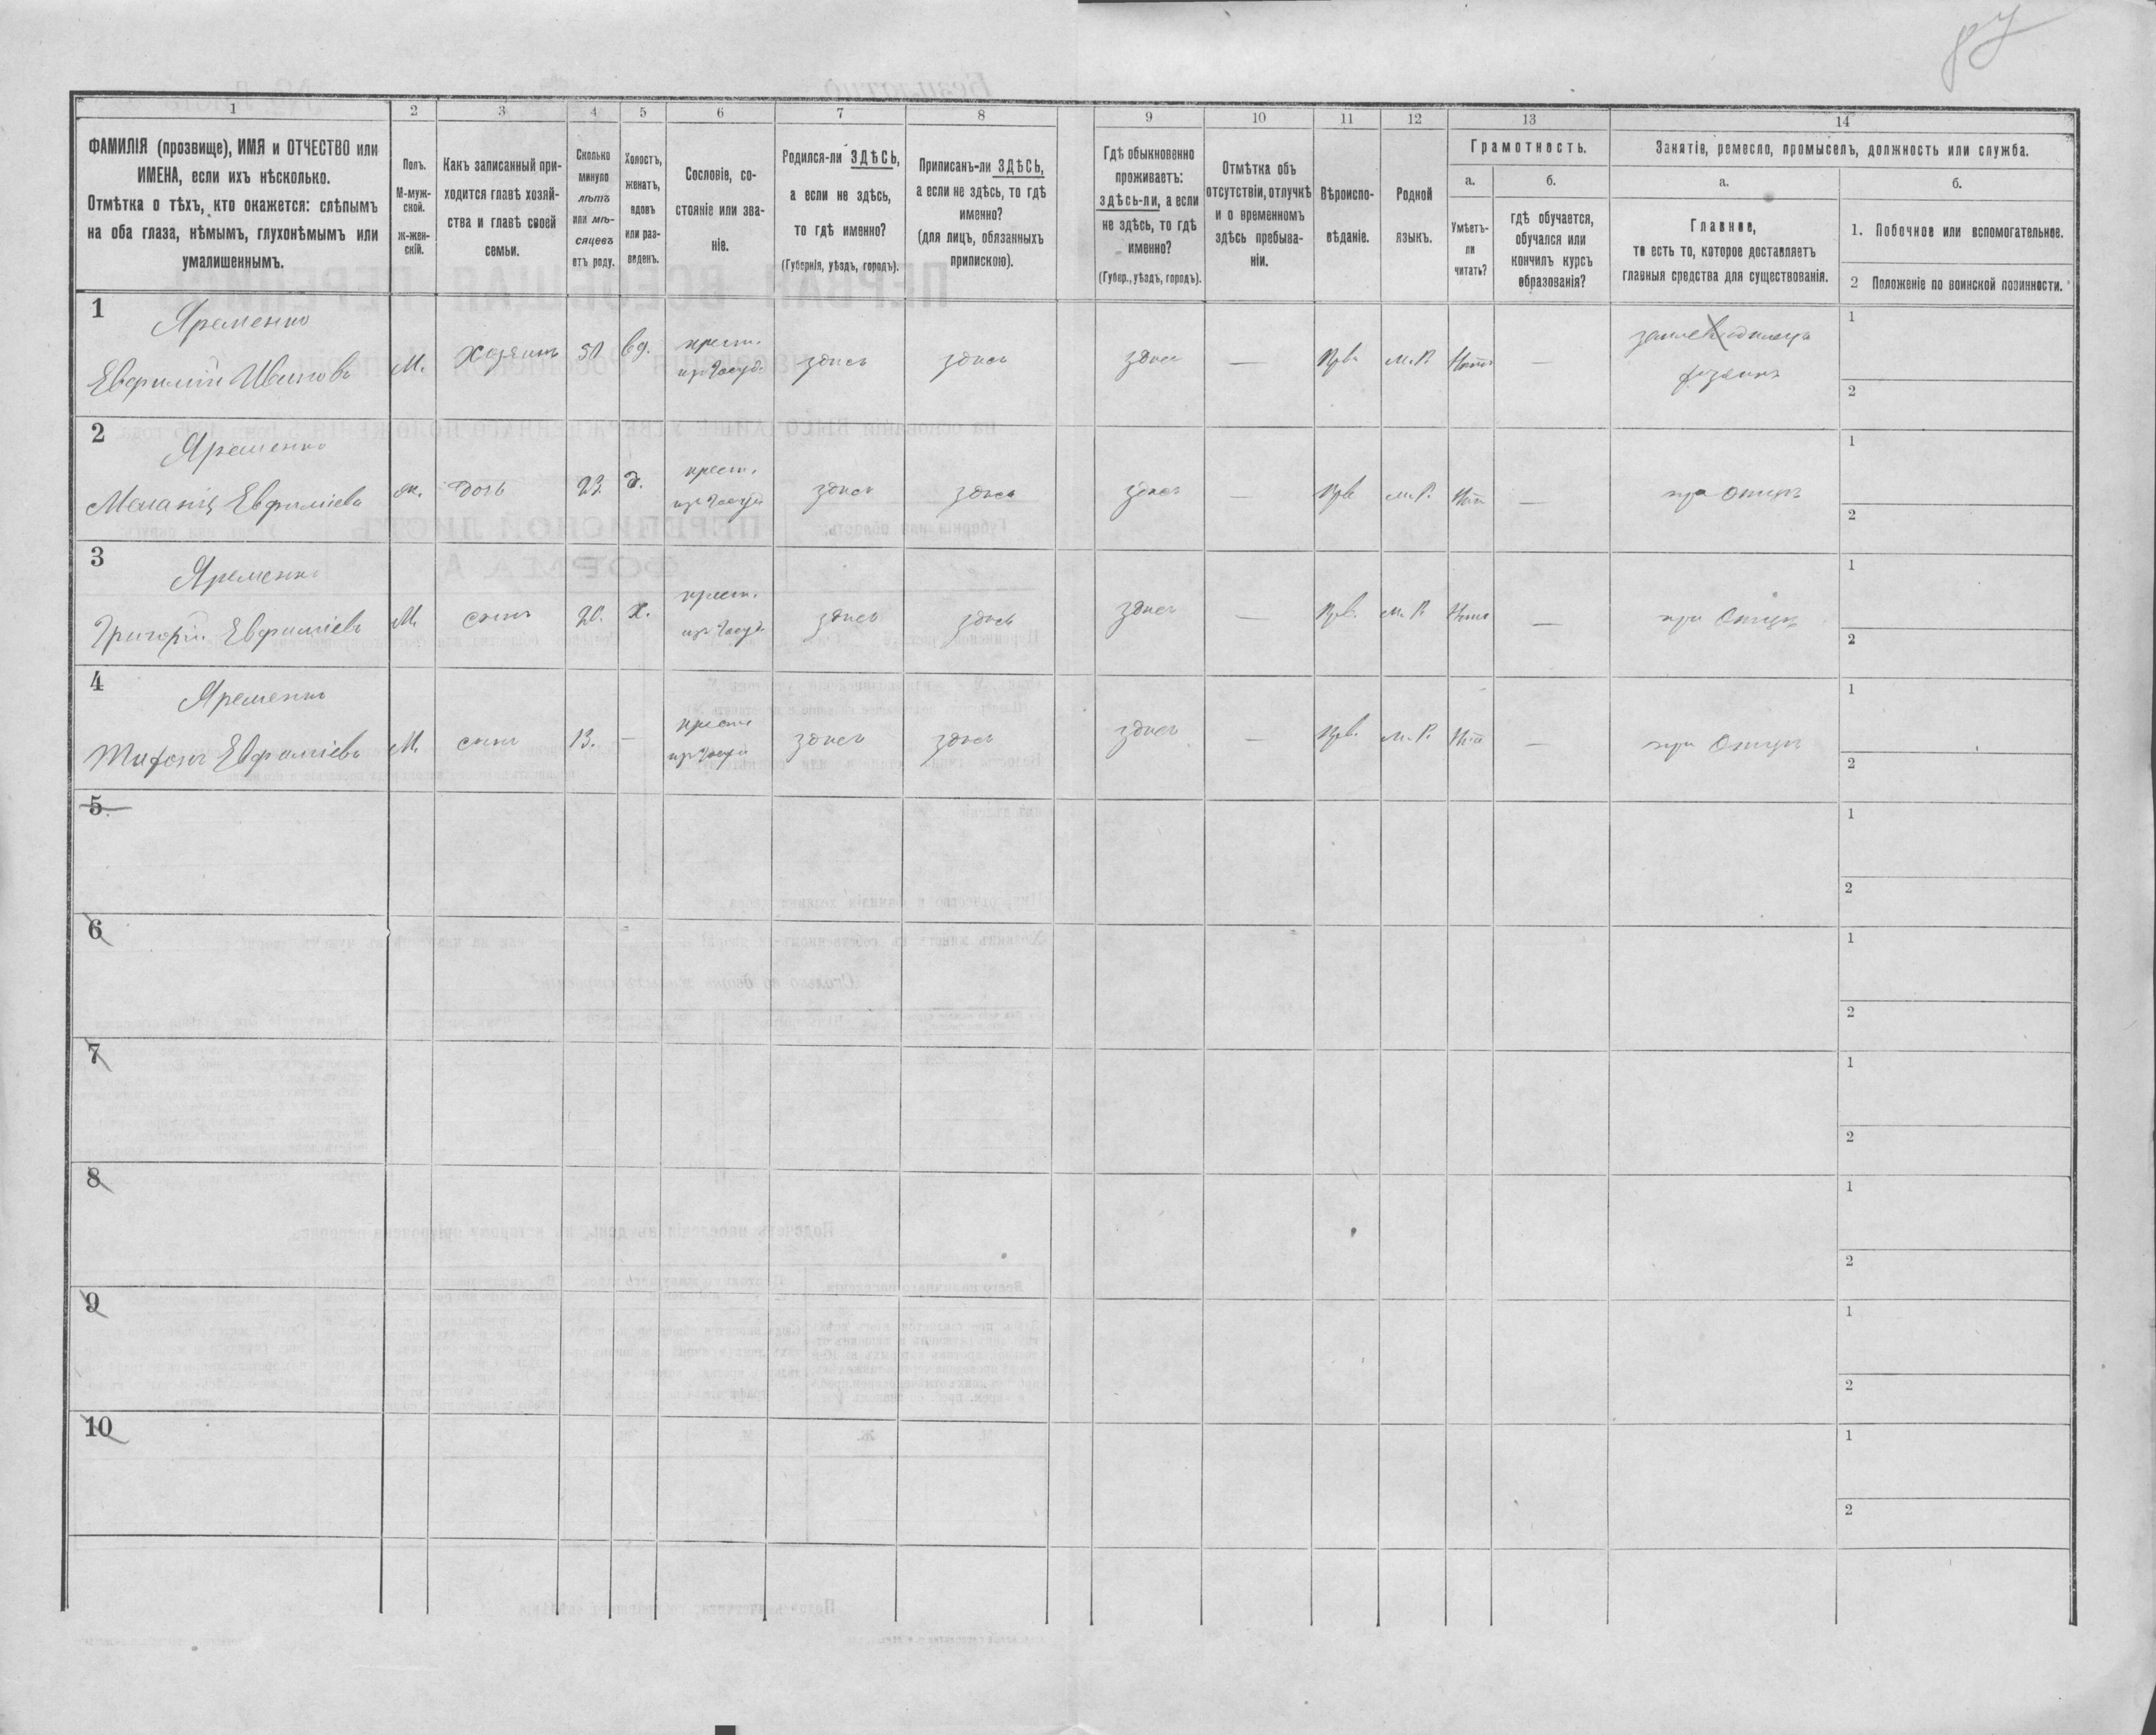 87
1
2
3
4
5
6
7
8
9
10
11
12
13
14
ФАМИЛІЯ (прозвище), ИМЯ и ОТЧЕСТВО или
ИМЕНА, если ихъ нѣсколько.
Отмѣтка о тѣхъ, кто окажется: слѣпымъ
на оба глаза, нѣмымъ, глухонѣмымъ или
умалишеннымъ.
Полъ.
М-муж-
ской.
ж-жен-
скій.
Какъ записанный при-
ходится главѣ хозяй-
ства и главѣ своей
семьи.
Сколько
минуло
лѣтъ
или мѣ-
сяцевъ
отъ роду.
Холостъ,
женатъ,
вдовъ
или раз-
веденъ.
Сословіе, со-
стояніе или зва-
ніе.
Родился-ли ЗДѢСЬ,
а если не здѣсь,
то гдѣ именно?
(Губернія, уѣздъ, городъ).
Приписанъ-ли ЗДѢСЬ,
а если не здѣсь, то гдѣ
именно?
(для лицъ, обязанныхъ
припискою).
Гдѣ обыкновенно
проживаетъ:
здѣсь-ли, а если
не здѣсь, то гдѣ
именно?
(Губер., уѣздъ, городъ).
Отмѣтка объ
отсутствіи, отлучкѣ
и о временномъ
здѣсь пребыва-
ніи.
Вѣроиспо-
вѣданіе.
Родной
языкъ.
Грамотность.
а.
Умѣетъ-
ли
читать?
б.
гдѣ обучается,
обучался или
кончилъ курсъ
образованія?
Занятіе, ремесло, промыселъ, должность или служба.
а.
Главное,
то есть то, которое доставляетъ
главныя средства для существованія.
б.
1. Побочное или вспомогательное.
2 Положеніе по воинской повинности.
1
Яременко
Евфимій Ивановъ
М. хозяинъ 50 вд. крест. здѣсь здѣсь здѣсь — Прв. М.Р. Нѣтъ —
1
2
2
Яременко
Меланія Евфиміева
ж. дочь 23. д. крест. здѣсь здѣсь здѣсь — Прв. М.Р. Нѣтъ — при отцѣ
1
2
3
Яременко
Григорій Евфиміевъ
М. сынъ 20. х. крест. здѣсь здѣсь здѣсь — Прв. М.Р. Нѣтъ — при отцѣ
1
2
4
Яременко
Евфиміевъ
М. сынъ 13. — крест. здѣсь здѣсь здѣсь — Прв. М.Р. Нѣтъ — при отцѣ
1
2
5
1
2
6
1
2
7
1
2
8
1
2
9
1
2
10
1
2